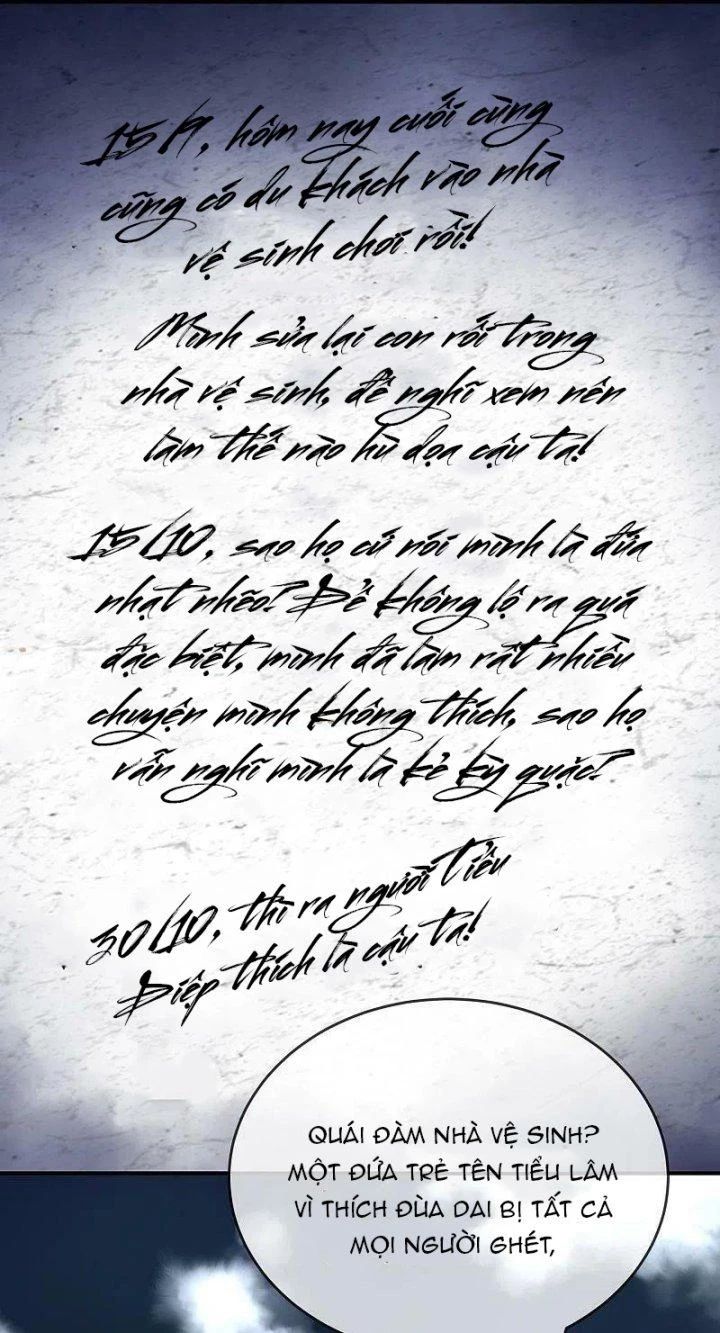 15/9, hôm nay cuối cùng
cũng có du khách vào nhà
vệ sinh chơi rồi!
Mình sửa lại con rối trong
nhà vệ sinh, để nghĩ xem nên
làm thế nào hù dọa cậu ta!
15/10, sao họ cứ nói mình là đứa
nhạt nhẽo? Để không lộ ra quá
đặc biệt, mình đã làm rất nhiều
chuyện mình không thích, sao họ
vẫn nghĩ mình là kẻ kỳ quặc?
30/10, thì ra người Tiểu
Diệp thích là cậu ta!
QUÁI ĐÀM NHÀ VỆ SINH?
MỘT ĐỨA TRẺ TÊN TIỂU LÂM
VÌ THÍCH ĐÙA DAI BỊ TẤT CẢ
MỌI NGƯỜI GHÉT,